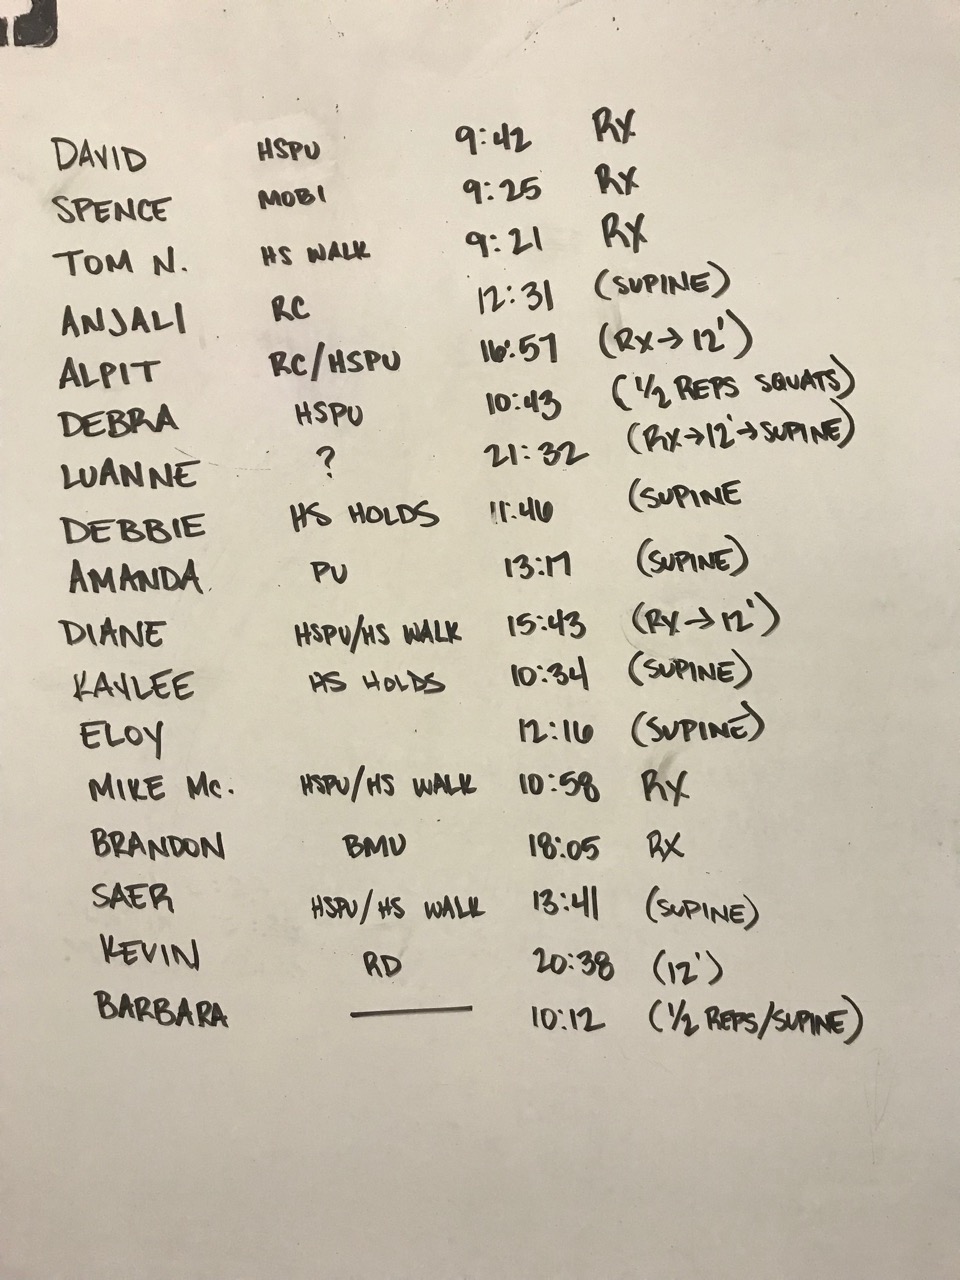 DAVID HSPU 9:42 RX
SPENCE MOBI 9:25 RX
TOM N. HS WALK 9:21 RX
ANJALI RC 12:31 (SUPINE)
ALPIT RC/HSPU 16:57 (RX→12')
DEBRA HSPU 10:43 (1/2 REPS SQUATS)
LUANNE ? 21:32 (RX→12'→SUPINE)
DEBBIE HS HOLDS 11:46 (SUPINE
AMANDA PU 13:17 (SUPINE)
DIANE HSPU/HS WALK 15:43 (RX→12')
KAYLEE HS HOLDS 10:34 (SUPINE)
ELOY 12:16 (SUPINE)
MIKE Mc. HSPU/HS WALK 10:58 RX
BRANDON BMU 18:05 RX
SAER HSPU/HS WALK 13:41 (SUPINE)
KEVIN RD 20:38 (12')
BARBARA — 10:12 (1/2 REPS/SUPINE)